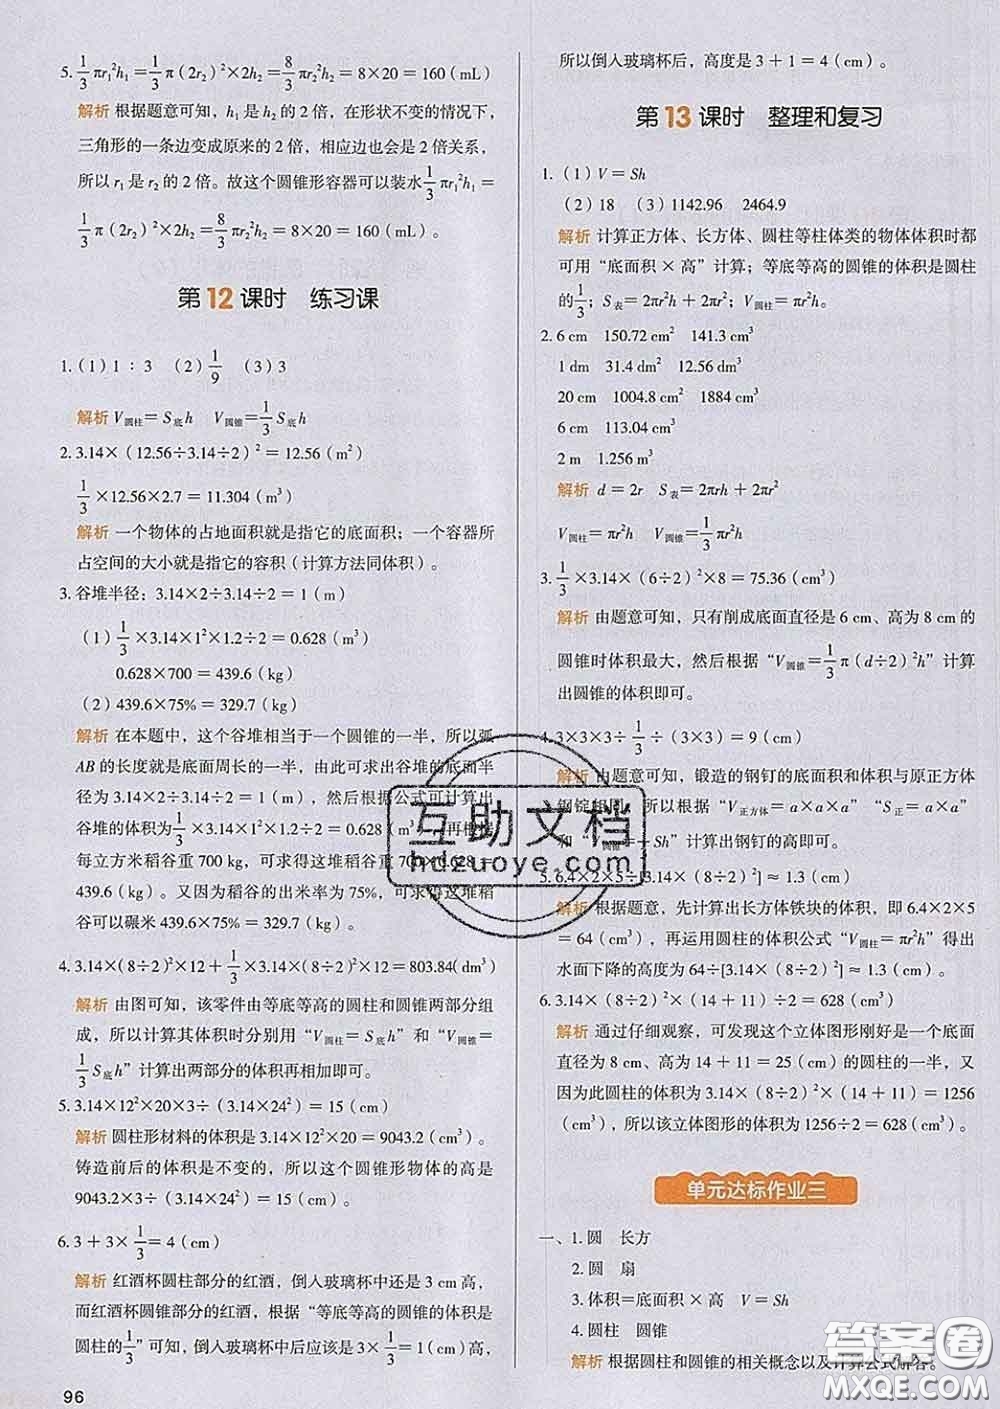 5. 1/3 πr₁²h₁ = 1/3 π(2r₂)²×2h₂ = 8/3 πr₂²h₂ = 8×20 = 160(mL)
解析 根据题意可知，h₁ 是 h₂ 的 2 倍，在形状不变的情况下，
三角形的一条边变成原来的 2 倍，相应边也会是 2 倍关系，
所以 r₁ 是 r₂ 的 2 倍。故这个圆锥形容器可以装水 1/3 πr₁²h₁ =
1/3 π(2r₂)²×2h₂ = 8/3 πr₂²h₂ = 8×20 = 160(mL)。
第 12 课时 练习课
1.(1)1∶3 (2)1/9 (3)3
解析 V圆柱 = S底h V圆锥 = 1/3 S底h
2. 3.14×(12.56÷3.14÷2)² = 12.56(m²)
1/3 ×12.56×2.7 = 11.304(m³)
解析 一个物体的占地面积就是指它的底面积；一个容器所
占空间的大小就是指它的容积（计算方法同体积）。
3. 谷堆半径：3.14×2÷3.14÷2 = 1(m)
(1) 1/3 ×3.14×1²×1.2÷2 = 0.628(m³)
0.628×700 = 439.6(kg)
(2)439.6×75% = 329.7(kg)
解析 在本题中，这个谷堆相当于一个圆锥的一半，所以弧
AB 的长度就是底面周长的一半，由此可求出谷堆的底面半
径为 3.14×2÷3.14÷2 = 1(m)，然后根据公式可计算出
谷堆的体积为 1/3 ×3.14×1²×1.2÷2 = 0.628(m³)，再根据
每立方米稻谷重 700 kg，可求得这堆稻谷重 700×0.628 =
439.6(kg)。又因为稻谷的出米率为 75%，可求得这堆稻
谷可以碾米 439.6×75% = 329.7(kg)。
4. 3.14×(8÷2)²×12 + 1/3 ×3.14×(8÷2)²×12 = 803.84(dm³)
解析 由图可知，该零件由等底等高的圆柱和圆锥两部分组
成，所以计算其体积时分别用“V圆柱 = S底h”和“V圆锥 =
1/3 S底h”计算出两部分的体积再相加即可。
5. 3.14×12²×20×3÷(3.14×24²) = 15(cm)
解析 圆柱形材料的体积是 3.14×12²×20 = 9043.2(cm³)。
铸造前后的体积是不变的，所以这个圆锥形物体的高是
9043.2×3÷(3.14×24²) = 15(cm)。
6. 3 + 3× 1/3 = 4(cm)
解析 红酒杯圆柱部分的红酒，倒入玻璃杯中还是 3 cm 高，
而红酒杯圆锥部分的红酒，根据“等底等高的圆锥的体积是
圆柱的 1/3”可知，倒入玻璃杯中后应该是 3× 1/3 = 1(cm)高，
96
所以倒入玻璃杯后，高度是 3 + 1 = 4(cm)。
第 13 课时 整理和复习
1.(1)V = Sh
(2)18 (3)1142.96 2464.9
解析 计算正方体、长方体、圆柱等柱体类的物体体积时都
可用“底面积×高”计算；等底等高的圆锥的体积是圆柱
的 1/3；S表 = 2πr²h + 2πr²；V圆柱 = πr²h。
2. 6 cm 150.72 cm² 141.3 cm³
1 dm 31.4 dm² 12.56 dm³
20 cm 1004.8 cm² 1884 cm³
6 cm 113.04 cm³
2 m 1.256 m³
解析 d = 2r S表 = 2πrh + 2πr²
V圆柱 = πr²h V圆锥 = 1/3 πr²h
3. 1/3 ×3.14×(6÷2)²×8 = 75.36(cm³)
解析 由题意可知，只有削成底面直径是 6 cm、高为 8 cm 的
圆锥时体积最大，然后根据“V圆锥 = 1/3 π(d÷2)²h”计算
出圆锥的体积即可。
4. 3×3×3÷ 1/3 ÷(3×3) = 9(cm)
解析 由题意可知，锻造的钢钉的底面积和体积与原正方体
钢锭相同，所以根据“V正方体 = a×a×a”“S正 = a×a”
和“V圆锥 = 1/3 Sh”计算出钢钉的高即可。
5. 6.4×2×5÷[3.14×(8÷2)²]≈1.3(cm)
解析 根据题意，先计算出长方体铁块的体积，即 6.4×2×5
= 64(cm³)，再运用圆柱的体积公式“V圆柱 = πr²h”得出
水面下降的高度为 64÷[3.14×(8÷2)²]≈1.3(cm)。
6. 3.14×(8÷2)²×(14 + 11)÷2 = 628(cm³)
解析 通过仔细观察，可发现这个立体图形刚好是一个底面
直径为 8 cm、高为 14 + 11 = 25(cm)的圆柱的一半，又
因为此圆柱的体积为 3.14×(8÷2)²×(14 + 11) = 1256
(cm³)，所以该立体图形的体积为 1256÷2 = 628(cm³)。
单元达标作业三
一、1. 圆 长方
2. 圆 扇
3. 体积=底面积×高 V = Sh
4. 圆柱 圆锥
解析 根据圆柱和圆锥的相关概念以及计算公式解答。
互助文档
hdzuoye.com
答案圈
MXQE.COM